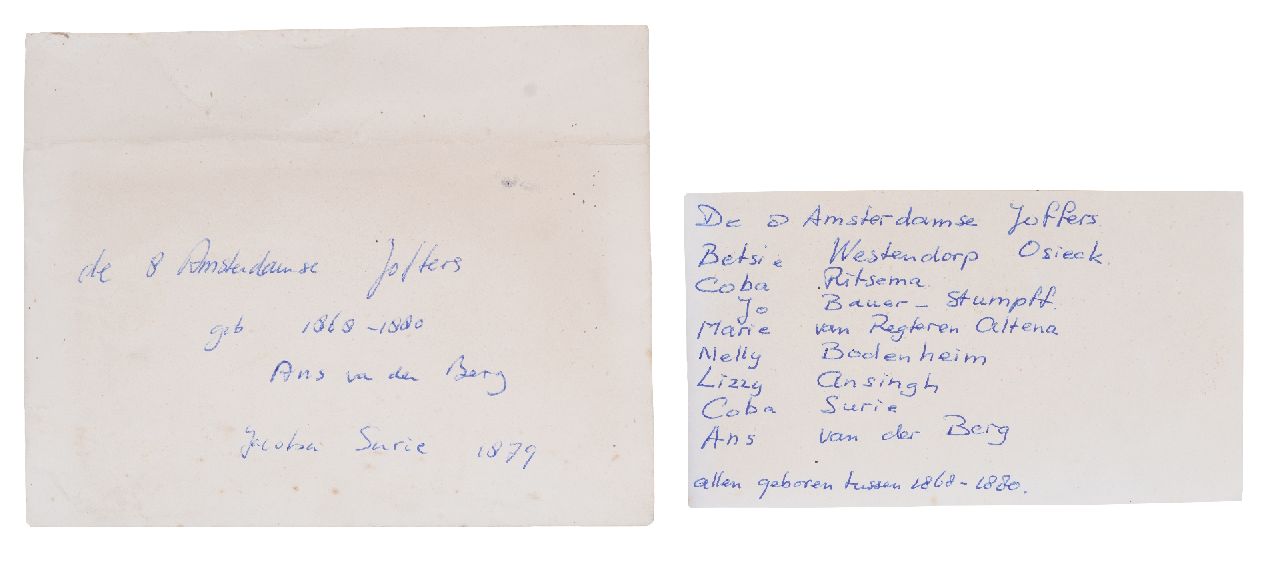 de 8 Amsterdamse Joffers
geb 1868-1880
Ans va der Berg
Jacoba Surie 1879
De 8 Amsterdamse Joffers
Betsie Westendorp Osieck.
Coba Ritsema
Jo Bauer-Stumpff.
Marie van Regteren Altena
Nelly Bodenheim
Lizzy Ansingh
Coba Surie
Ans van der Berg
allen geboren tussen 1868-1880.